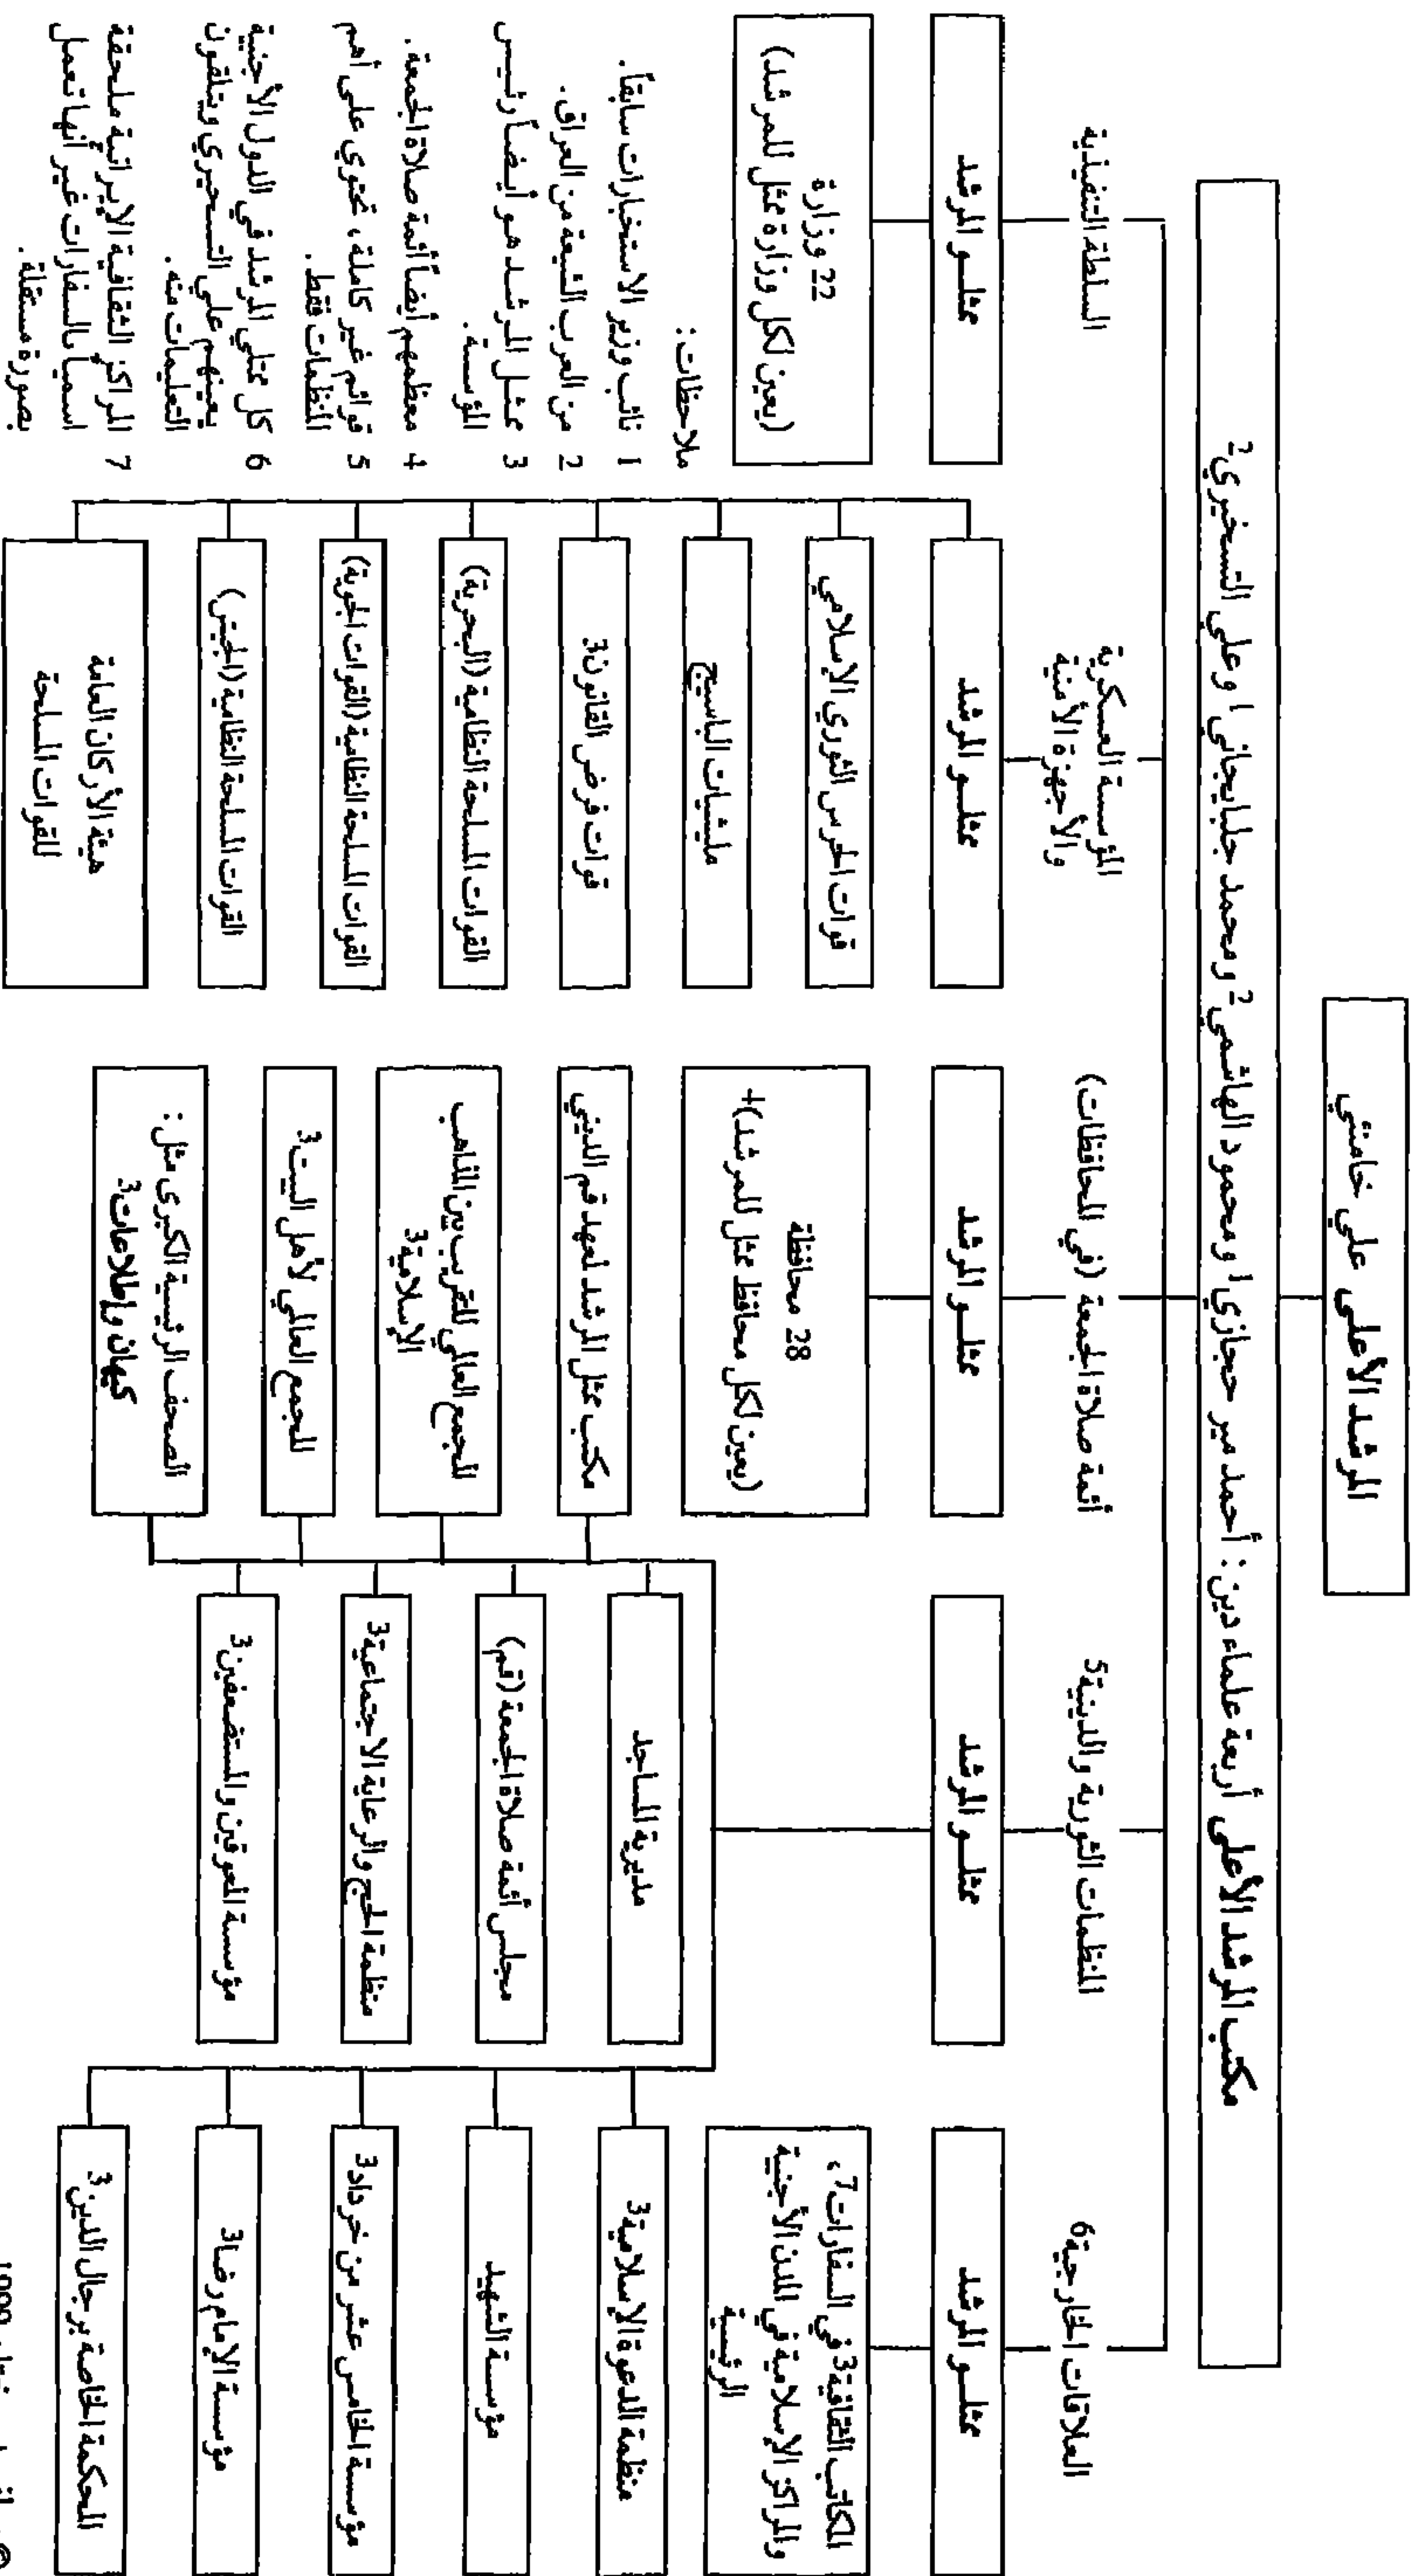 المرشد الأعلى علي خامنئي
مكتب المرشد الأعلى أربعة علماء دين: أحمد مير حجازي1 ومحمود الهاشمي2 ومحمد جلبايجاني1 وعلي التسخيري2
السلطة التنفيذية
ممثلو المرشد
22 وزارة
(يعين لكل وزارة ممثل للمرشد)
المؤسسة العسكرية
والأجهزة الأمنية
ممثلو المرشد
قوات الحرس الثوري الإسلامي
مليشيات الباسيج
قوات فرض القانون3
القوات المسلحة النظامية (البحرية)
القوات المسلحة النظامية (القوات الجوية)
القوات المسلحة النظامية (الجيش)
هيئة الأركان العامة
للقوات المسلحة
أئمة صلاة الجمعة (في المحافظات)
ممثلو المرشد
28 محافظة
(يعين لكل محافظ ممثل للمرشد)4
المنظمات الثورية والدينية5
ممثلو المرشد
مكتب ممثل المرشد لمعهد قم الديني
المجمع العالي للتقريب بين المذاهب
الإسلامية3
المجمع العالي لأهل البيت3
الصحف الرئيسية الكبرى مثل:
كيهان واطلاعات3
مديرية المساجد
مجلس أئمة صلاة الجمعة (قم)
منظمة الحج والرعاية الاجتماعية3
مؤسسة المعوقين والمستضعفين3
العلاقات الخارجية6
ممثلو المرشد
المكاتب الثقافية3 في السفارات7،
والمراكز الإسلامية في المدن الأجنبية
الرئيسية
منظمة الدعوة الإسلامية3
مؤسسة الشهيد
مؤسسة الخامس عشر من خرداد3
مؤسسة الإمام رضا3
المحكمة الخاصة برجال الدين3
ملاحظات:
1 نائب وزير الاستخبارات سابقاً.
2 من العرب الشيعة من العراق.
3 ممثل المرشد هو أيضاً رئيس
المؤسسة.
4 معظمهم أيضاً أئمة صلاة الجمعة.
5 قوائم غير كاملة، تحتوي على أهم
المنظمات فقط.
6 كل ممثلي المرشد في الدول الأجنبية
يعينهم علي التسخيري ويتلقون
التعليمات منه.
7 المراكز الثقافية الإيرانية ملحقة
اسمياً بالسفارات غير أنها تعمل
بصورة مستقلة.